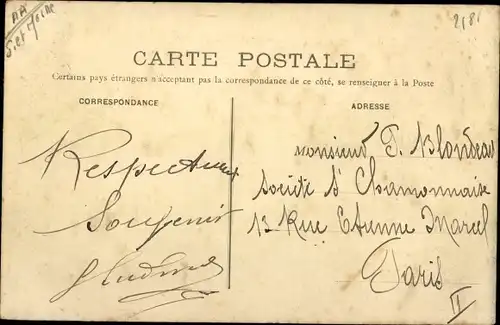 AA
S. et Marne
2181
CARTE POSTALE
Certains pays étrangers n'acceptant pas la correspondance de ce côté, se renseigner à la Poste
CORRESPONDANCE
ADRESSE
Respectueux
Souvenir
Monsieur P. Blondeau
Société d'
13 Rue Etienne Marcel
Paris
II